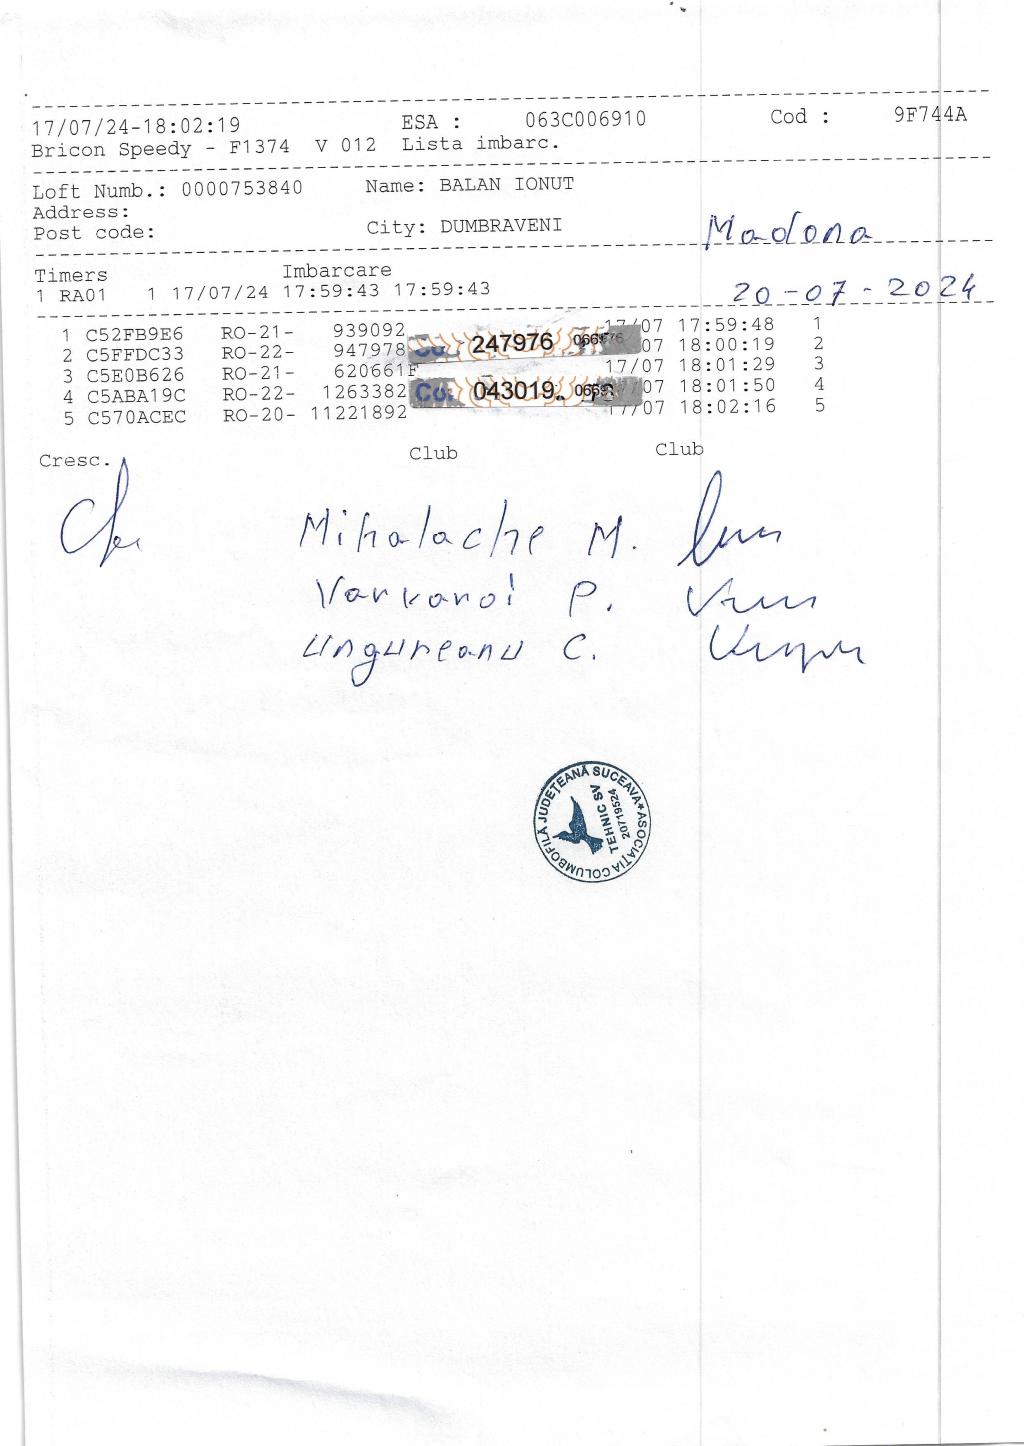 17/07/24-18:02:19 ESA : 063C006910 Cod : 9F744A
Bricon Speedy - F1374 V 012 Lista imbarc.
Loft Numb.: 0000753840 Name: BALAN IONUT
Address:
Post code: City: DUMBRAVENI Madona
Timers Imbarcare
1 RA01 1 17/07/24 17:59:43 17:59:43 20-07-2024
1 C52FB9E6 RO-21- 939092 17/07 17:59:48 1
2 C5FFDC33 RO-22- 947978 247976 /07 18:00:19 2
3 C5E0B626 RO-21- 620661F 17/07 18:01:29 3
4 C5ABA19C RO-22- 1263382 043019 /07 18:01:50 4
5 C570ACEC RO-20- 11221892 17/07 18:02:16 5
Cresc. Club Club
Mihalache M.
Varvaroi P.
Ungureanu C.
ASOCIAȚIA COLUMBOFILĂ JUDEȚEANĂ SUCEAVA
TEHNIC SV
20719524